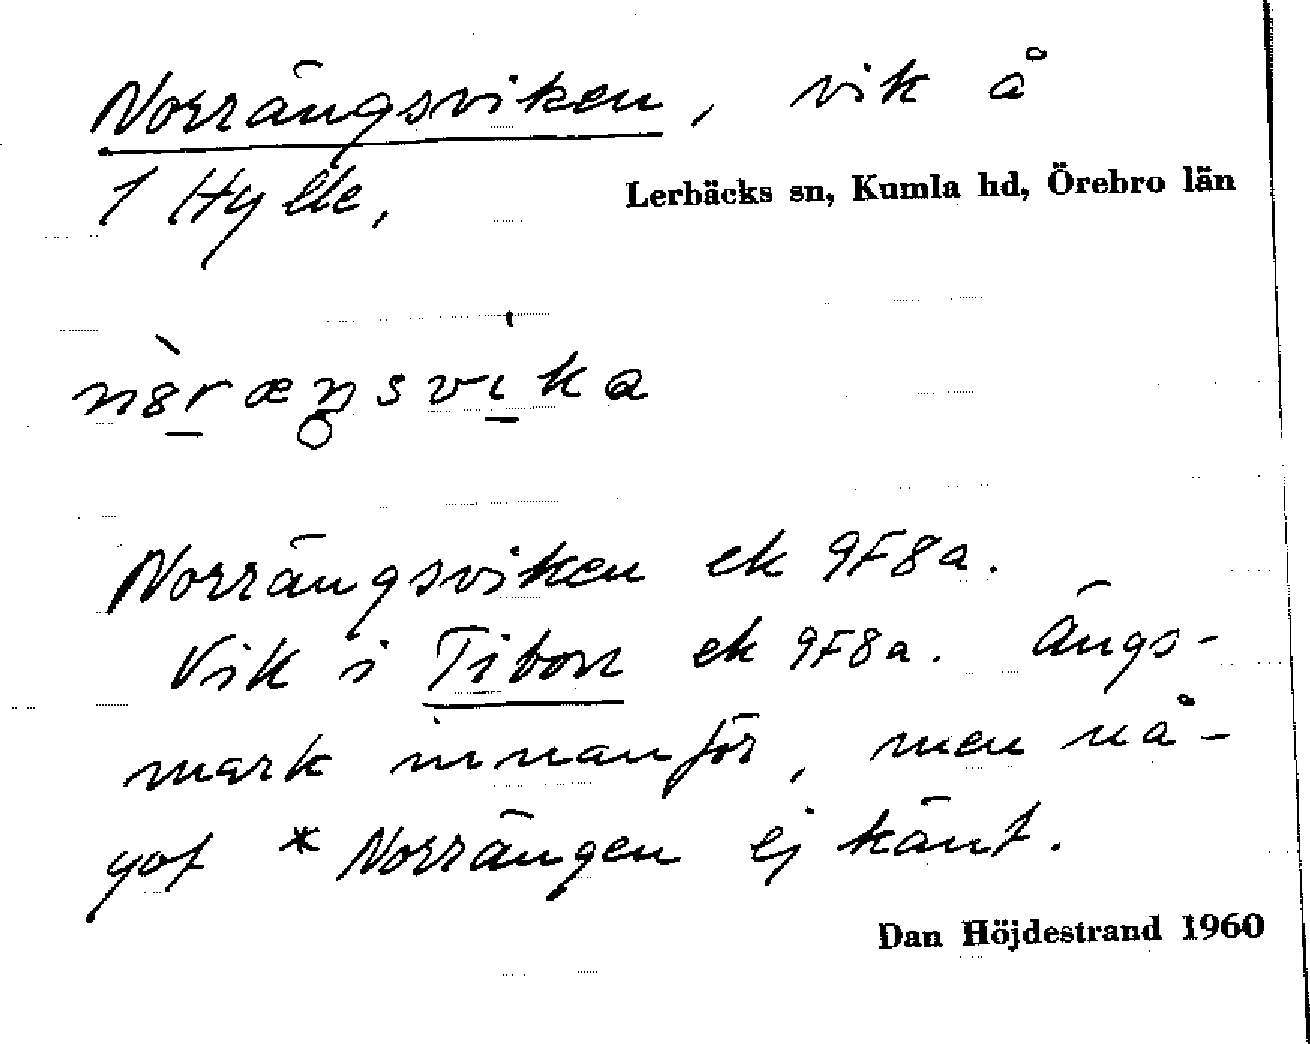 Norrängsviken, vik å
1 Hylle,
Lerbäcks sn, Kumla hd, Örebro län
Norrängsviken ek 9F8a.
Vik i Tibon ek 9F8a. Ängs-
mark innanför, men nå-
got * Norrängen ej känt.
Dan Höjdestrand 1960